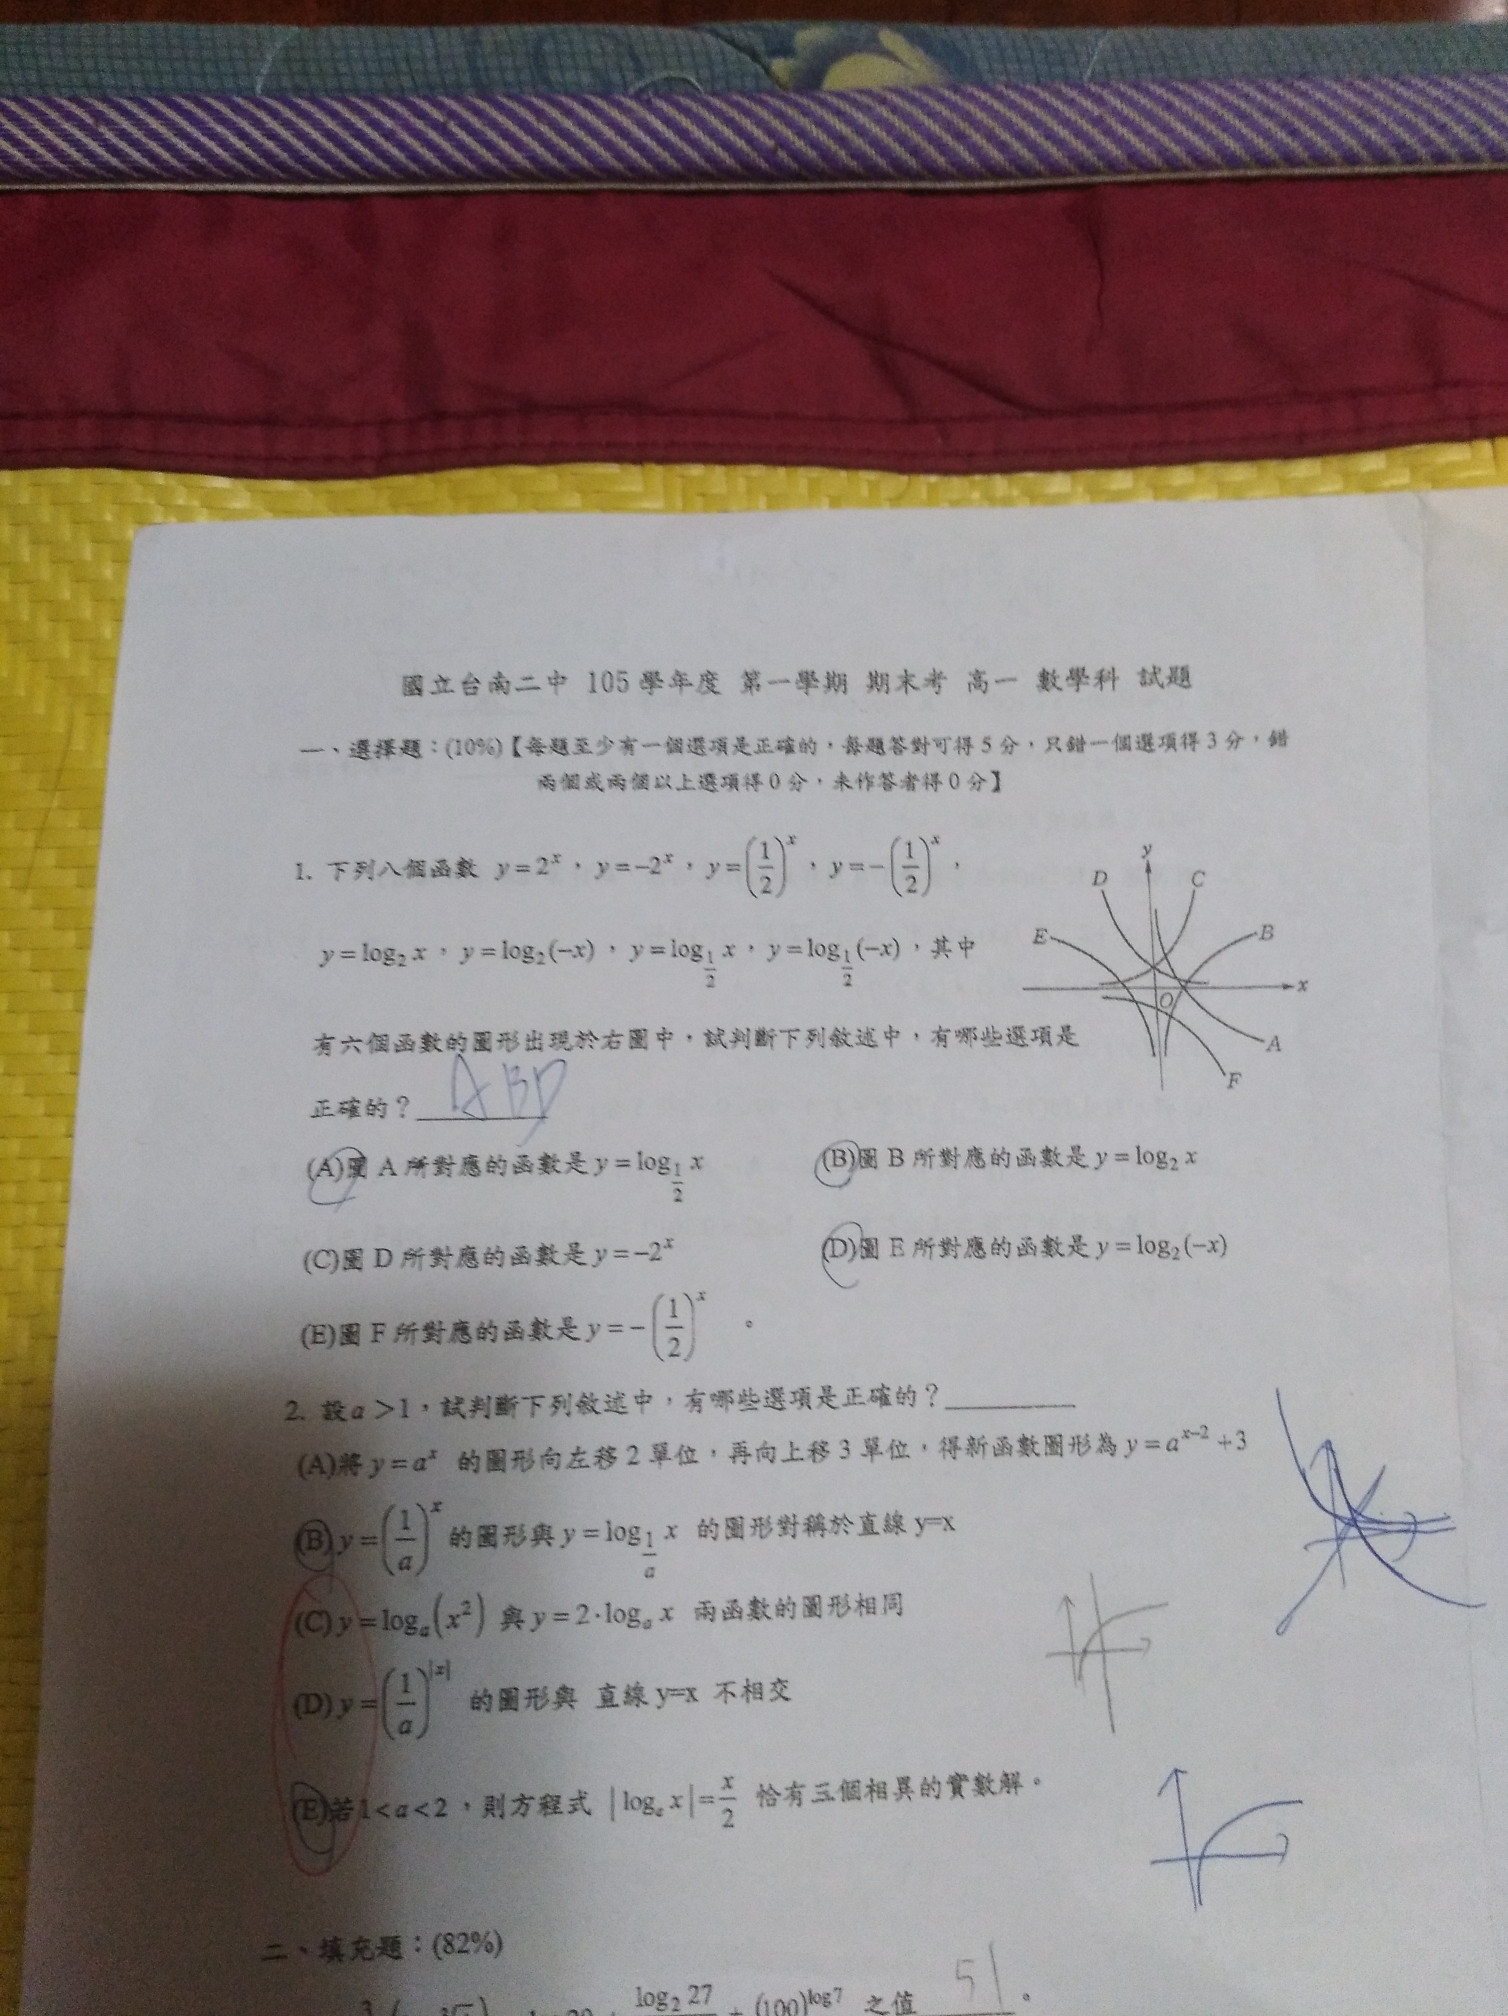 國立台南二中 105 學年度 第一學期 期末考 高一 數學科 試題
一、選擇題：(10%)【每題至少有一個選項是正確的，每題答對可得 5 分，只錯一個選項得 3 分，錯
兩個或兩個以上選項得 0 分，未作答者得 0 分】
1. 下列八個函數 y=2^x，y=-2^x，y=(1/2)^x，y=-(1/2)^x，
y=log_2 x，y=log_2(-x)，y=log_{1/2} x，y=log_{1/2}(-x)，其中
有六個函數的圖形出現於右圖中，試判斷下列敘述中，有哪些選項是
正確的？ABD
y
D C
E B
x
O
A
F
(A)圖 A 所對應的函數是 y=log_{1/2} x (B)圖 B 所對應的函數是 y=log_2 x
(C)圖 D 所對應的函數是 y=-2^x (D)圖 E 所對應的函數是 y=log_2(-x)
(E)圖 F 所對應的函數是 y=-(1/2)^x 。
2. 設 a＞1，試判斷下列敘述中，有哪些選項是正確的？
(A)將 y=a^x 的圖形向左移 2 單位，再向上移 3 單位，得新函數圖形為 y=a^{x-2}+3
(B) y=(1/a)^x 的圖形與 y=log_{1/a} x 的圖形對稱於直線 y=x
(C) y=log_a(x^2) 與 y=2·log_a x 兩函數的圖形相同
(D) y=(1/a)^{|x|} 的圖形與 直線 y=x 不相交
(E)若 1<a<2，則方程式 |log_a x|=x/2 恰有三個相異的實數解。
二、填充題：(82%)
log_2 27 + (100)^{log7} 之值 51 。